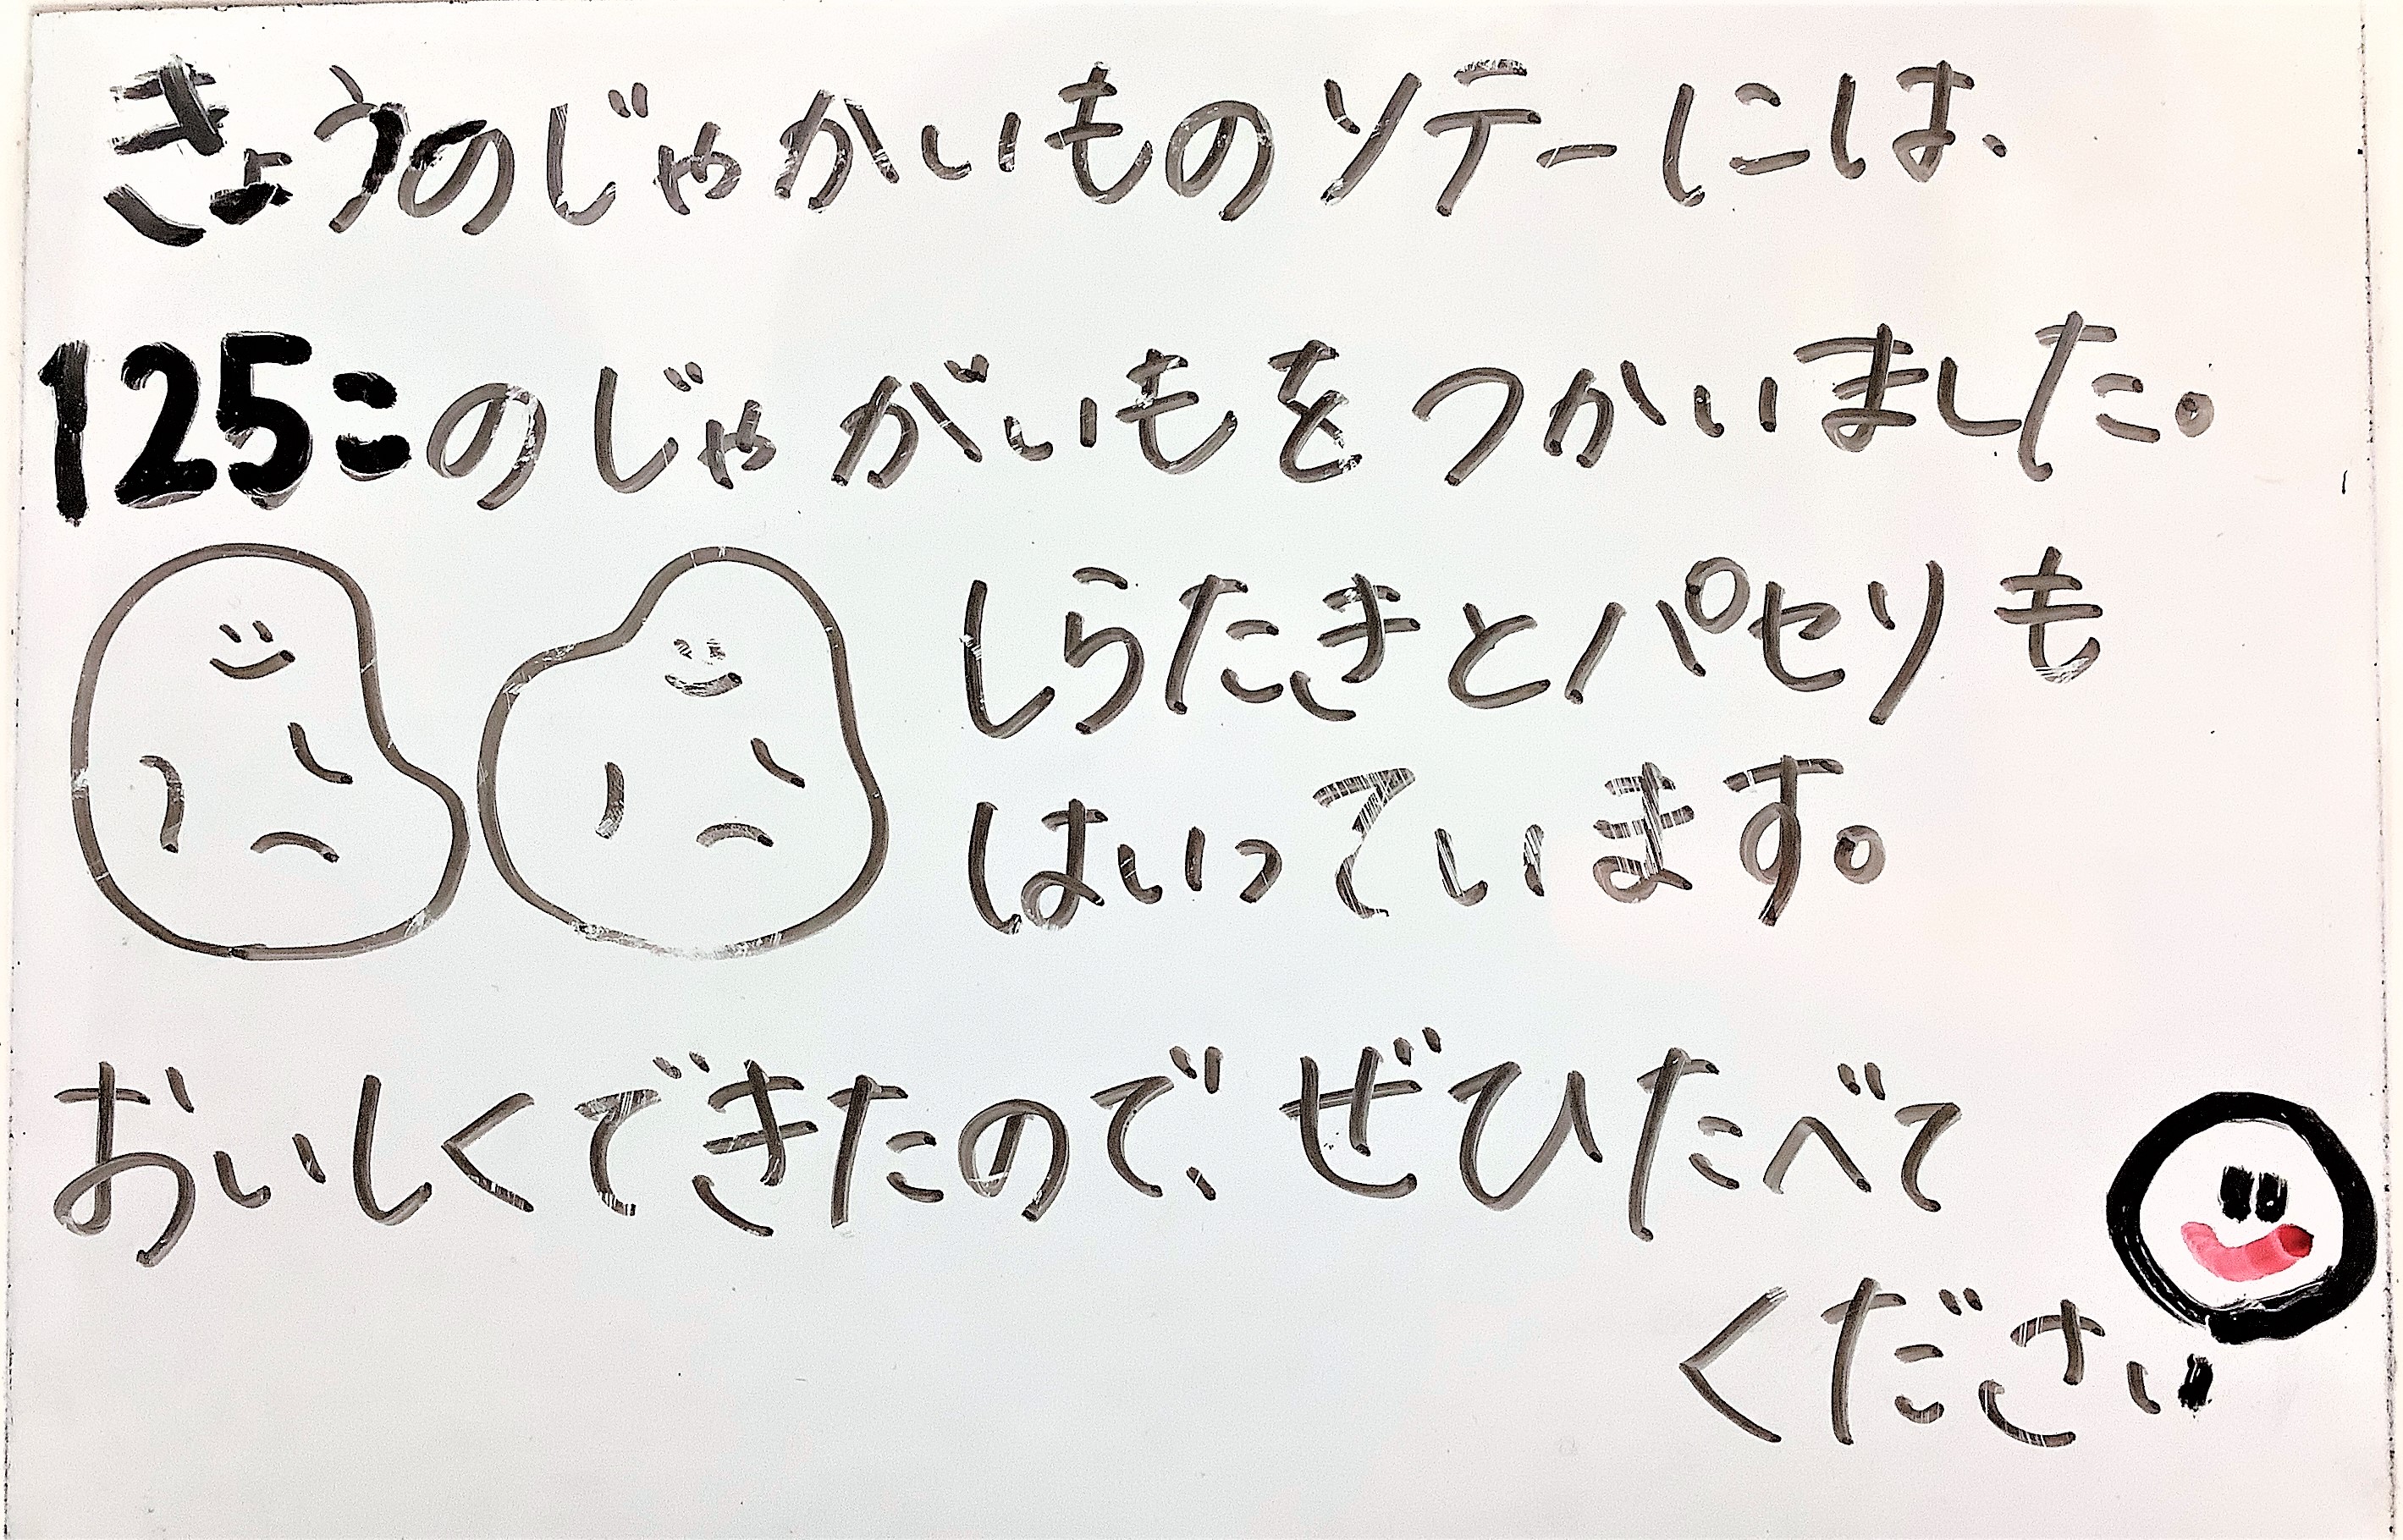 きょうのじゃかいものソテーには、
125このじゃがいもをつかいました。
しらたきとパセリも
はいっています。
おいしくできたので、ぜひたべて
ください